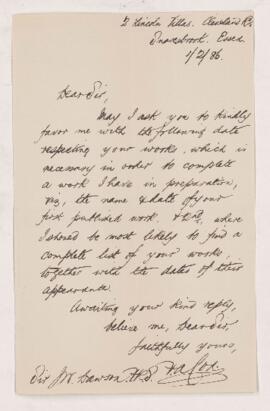 2 Lincoln Villas. Cleveland Rd.
Snaresbrook. Essex.
1/2/86.
Dear Sir,
May I ask you to kindly
favor me with the following data
respecting your works, which is
necessary in order to complete
a work I have in preparation,
viz, the name & date of your
first published work, where
I should be most likely to find a
complete list of your works,
together with the dates of their
appearance
Awaiting your kind reply,
believe me, Dear Sir,
faithfully yours,
Sir J.W. Dawson.